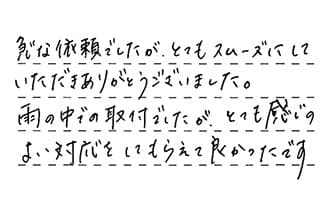 急な依頼でしたが、とてもスムーズにして
いただきありがとうございました。
雨の中での取付でしたが、とても感じの
よい対応をしてもらえて良かったです